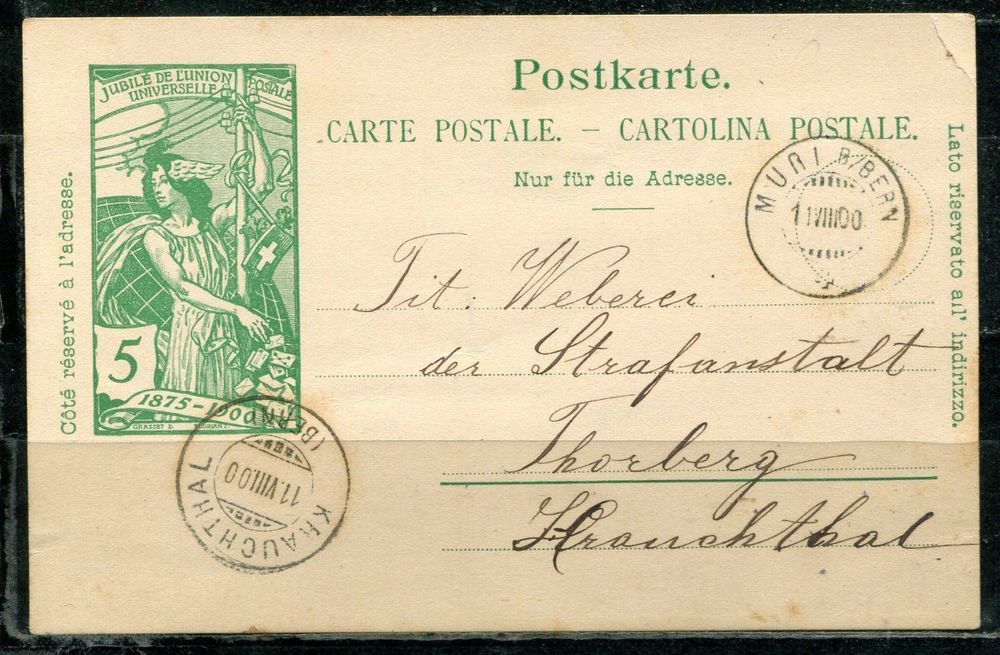 JUBILÉ DE L'UNION POSTALE
UNIVERSELLE
5
1875-1900
GRASSET D.
Côté réservé à l'adresse.
Postkarte.
CARTE POSTALE. – CARTOLINA POSTALE.
Nur für die Adresse.
Lato riservato all' indirizzo.
MURI B/BERN
11VIII00
Tit: Weberei
der Strafanstalt
Thorberg
Krauchthal
KRAUCHTHAL
(BERN)
11.VIII.00